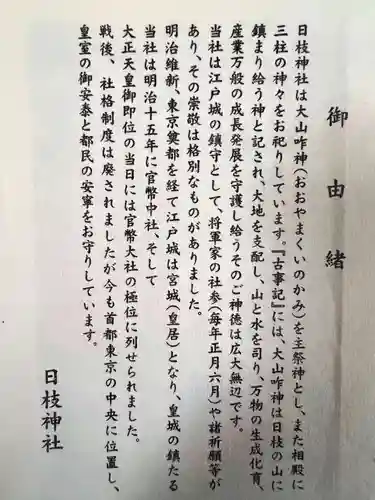 御由緒
日枝神社は大山咋神（おおやまくいのかみ）を主祭神とし、また相殿に
三柱の神々をお祀りしています。『古事記』には、大山咋神は日枝の山に
鎮まり給う神と記され、大地を支配し、山と水を司り、万物の生成化育、
産業万般の成長発展を守護し給うそのご神徳は広大無辺です。
当社は江戸城の鎮守として、将軍家の社参（毎年正月六月）や諸祈願等が
あり、その崇敬は格別なものがありました。
明治維新、東京奠都を経て江戸城は宮城（皇居）となり、皇城の鎮たる
当社は明治十五年に官幣中社、そして
大正天皇御即位の当日には官幣大社の極位に列せられました。
戦後、社格制度は廃されましたが今も首都東京の中央に位置し、
皇室の御安泰と都民の安寧をお守りしています。
日枝神社